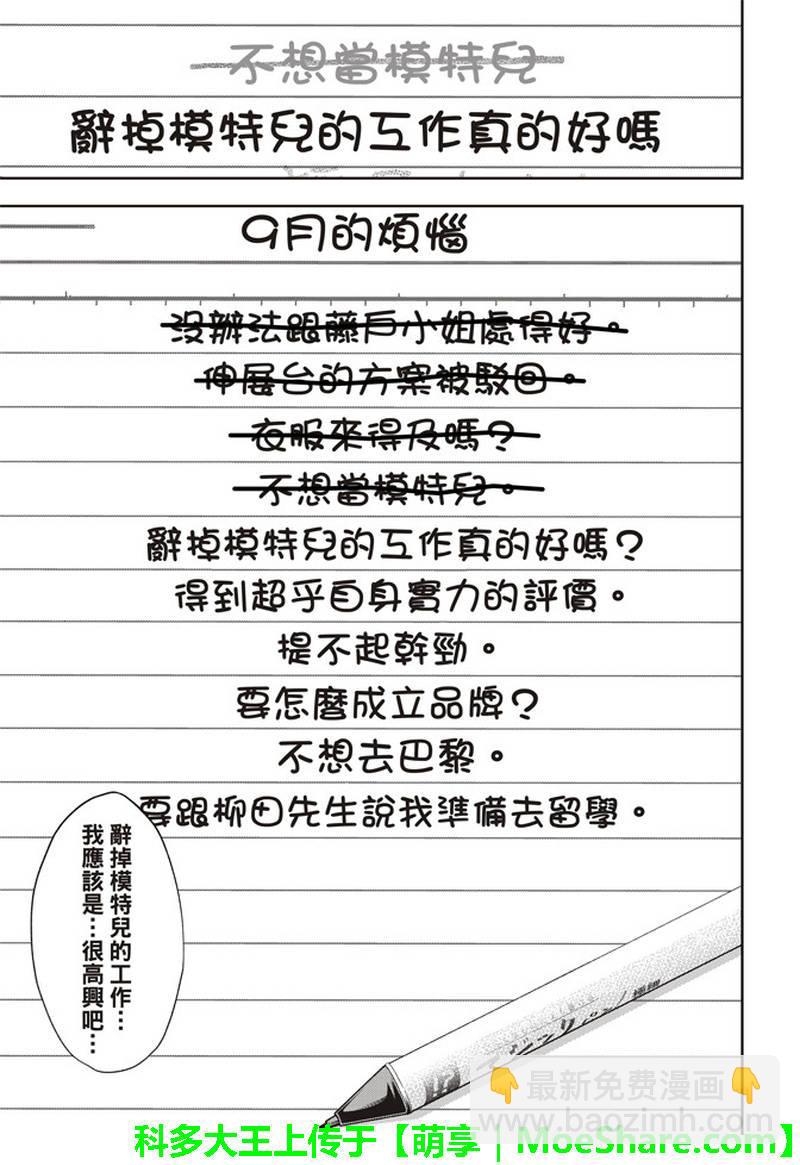 不想當模特兒
辭掉模特兒的工作真的好嗎
9月的煩惱
沒辦法跟藤戶小姐處得好。
伸展台的方案被駁回。
衣服來得及嗎？
不想當模特兒。
辭掉模特兒的工作真的好嗎？
得到超乎自身實力的評價。
提不起幹勁。
要怎麼成立品牌？
不想去巴黎。
要跟柳田先生說我準備去留學。
辭掉模特兒的工作…
我應該是…很高興吧…
最新免費漫画
www.baozimh.com
科多大王上传于【萌享｜MoeShare.com】